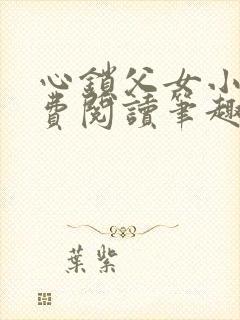 心鎖父女小
費閱讀筆趣
葉紫